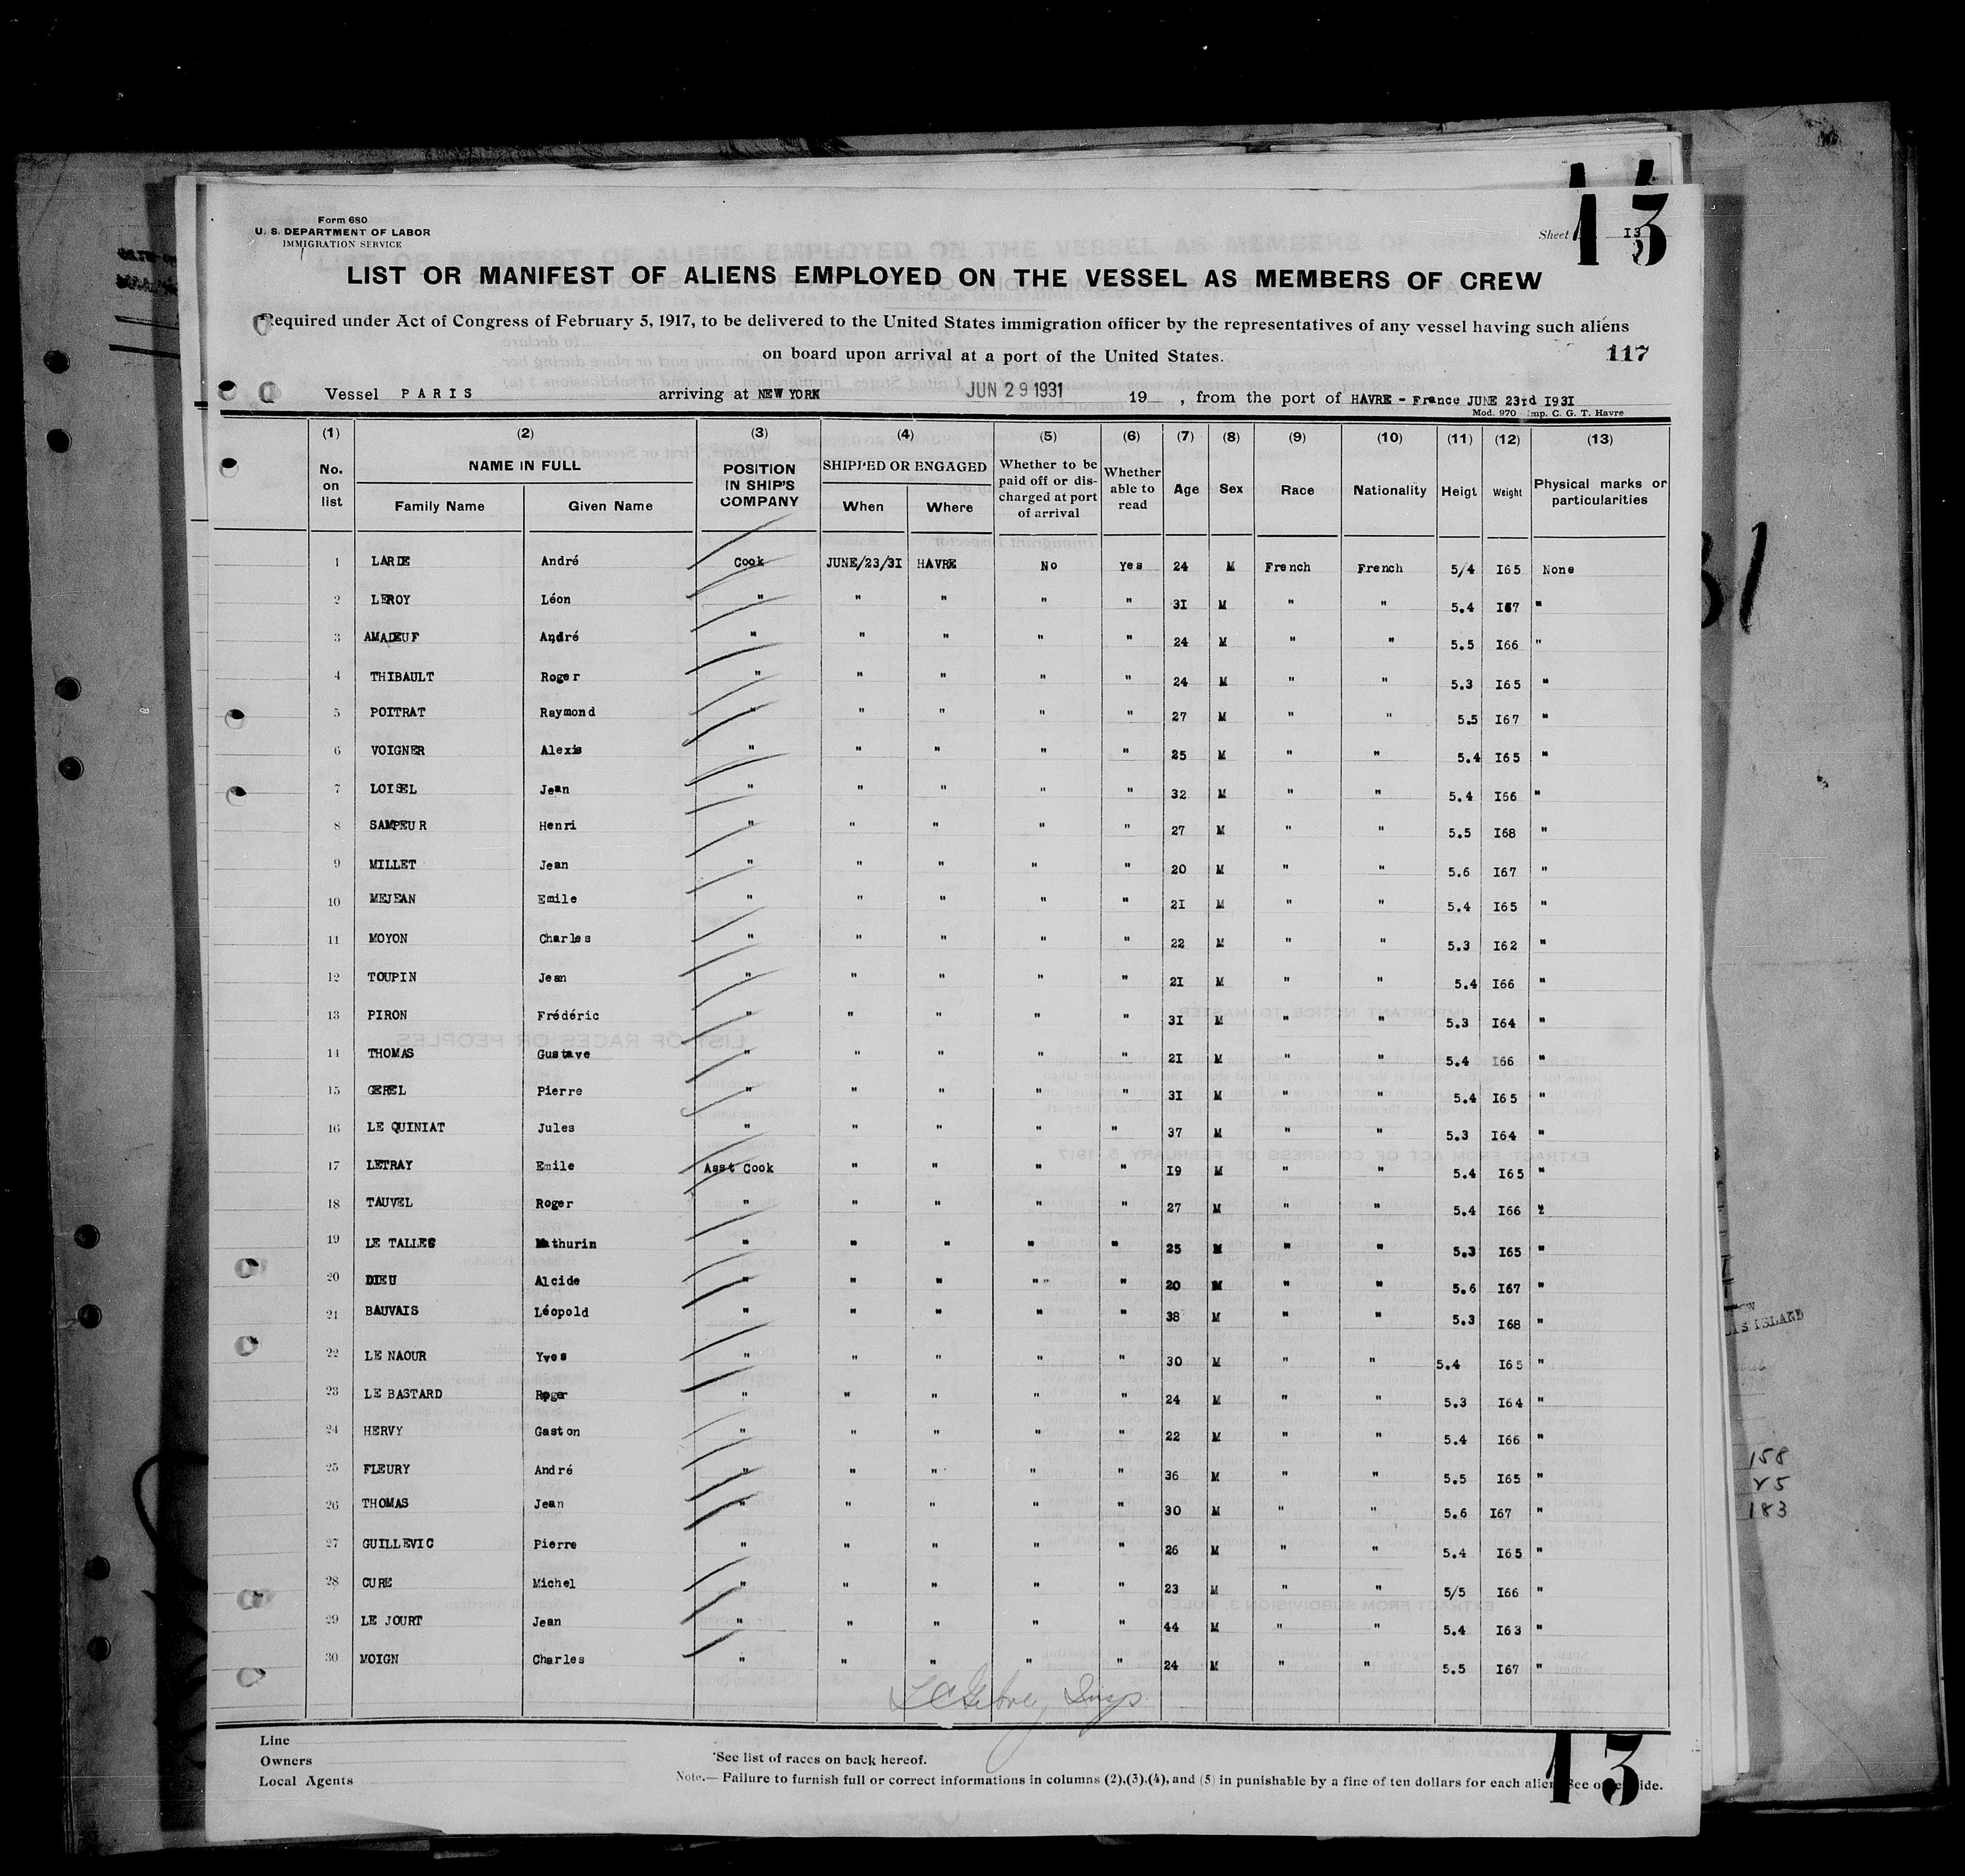 Form 680
U. S. DEPARTMENT OF LABOR
IMMIGRATION SERVICE
Sheet I3
13
LIST OR MANIFEST OF ALIENS EMPLOYED ON THE VESSEL AS MEMBERS OF CREW
Required under Act of Congress of February 5, 1917, to be delivered to the United States immigration officer by the representatives of any vessel having such aliens
on board upon arrival at a port of the United States.
117
Vessel PARIS arriving at NEW YORK JUN 29 1931 19 , from the port of HAVRE - France JUNE 23rd I93I
Mod. 970 Imp. C. G. T. Havre
(1) (2) (3) (4) (5) (6) (7) (8) (9) (10) (11) (12) (13)
No. on list NAME IN FULL Family Name Given Name POSITION IN SHIP'S COMPANY SHIPPED OR ENGAGED When Where Whether to be paid off or discharged at port of arrival Whether able to read Age Sex Race Nationality Heigt Weight Physical marks or particularities
1 LARDE André Cook JUNE/23/3I HAVRE No Yes 24 M French French 5/4 I65 None
2 LEROY Léon " " " " " 3I M " " 5.4 I67 "
3 AMADEUF André " " " " " 24 M " " 5.5 I66 "
4 THIBAULT Roger " " " " " 24 M " " 5.3 I65 "
5 POITRAT Raymond " " " " " 27 M " " 5.5 I67 "
6 VOIGNER Alexis " " " " " 25 M " " 5.4 I65 "
7 LOISEL Jean " " " " " 32 M " " 5.4 I66 "
8 SAMPEUR Henri " " " " " 27 M " " 5.5 I68 "
9 MILLET Jean " " " " " 20 M " " 5.6 I67 "
10 MEJEAN Emile " " " " " 2I M " " 5.4 I65 "
11 MOYON Charles " " " " " 22 M " " 5.3 I62 "
12 TOUPIN Jean " " " " " 2I M " " 5.4 I66 "
13 PIRON Frédéric " " " " " 3I M " " 5.3 I64 "
14 THOMAS Gustave " " " " " 2I M " " 5.4 I66 "
15 GEREL Pierre " " " " " 3I M " " 5.4 I65 "
16 LE QUINIAT Jules " " " " " 37 M " " 5.3 I64 "
17 LETRAY Emile Asst Cook " " " " I9 M " " 5.4 I65 "
18 TAUVEL Roger " " " " " 27 M " " 5.4 I66 "
19 LE TALLEC Mathurin " " " " " 25 M " " 5.3 I65 "
20 DIEU Alcide " " " " " 20 M " " 5.6 I67 "
21 BAUVAIS Léopold " " " " " 38 M " " 5.3 I68 "
22 LE NAOUR Yves " " " " " 30 M " " 5.4 I65 "
23 LE BASTARD Roger " " " " " 24 M " " 5.3 I64 "
24 HERVY Gaston " " " " " 22 M " " 5.4 I66 "
25 FLEURY André " " " " " 36 M " " 5.5 I65 "
26 THOMAS Jean " " " " " 30 M " " 5.6 I67 "
27 GUILLEVIC Pierre " " " " " 26 M " " 5.4 I65 "
28 CURE Michel " " " " " 23 M " " 5/5 I66 "
29 LE JOURT Jean " " " " " 44 M " " 5.4 I63 "
30 MOIGN Charles " " " " " 24 M " " 5.5 I67 "
Line
Owners
Local Agents
*See list of races on back hereof.
Note.— Failure to furnish full or correct informations in columns (2),(3),(4), and (5) in punishable by a fine of ten dollars for each alien See other side.
13
158
25
183